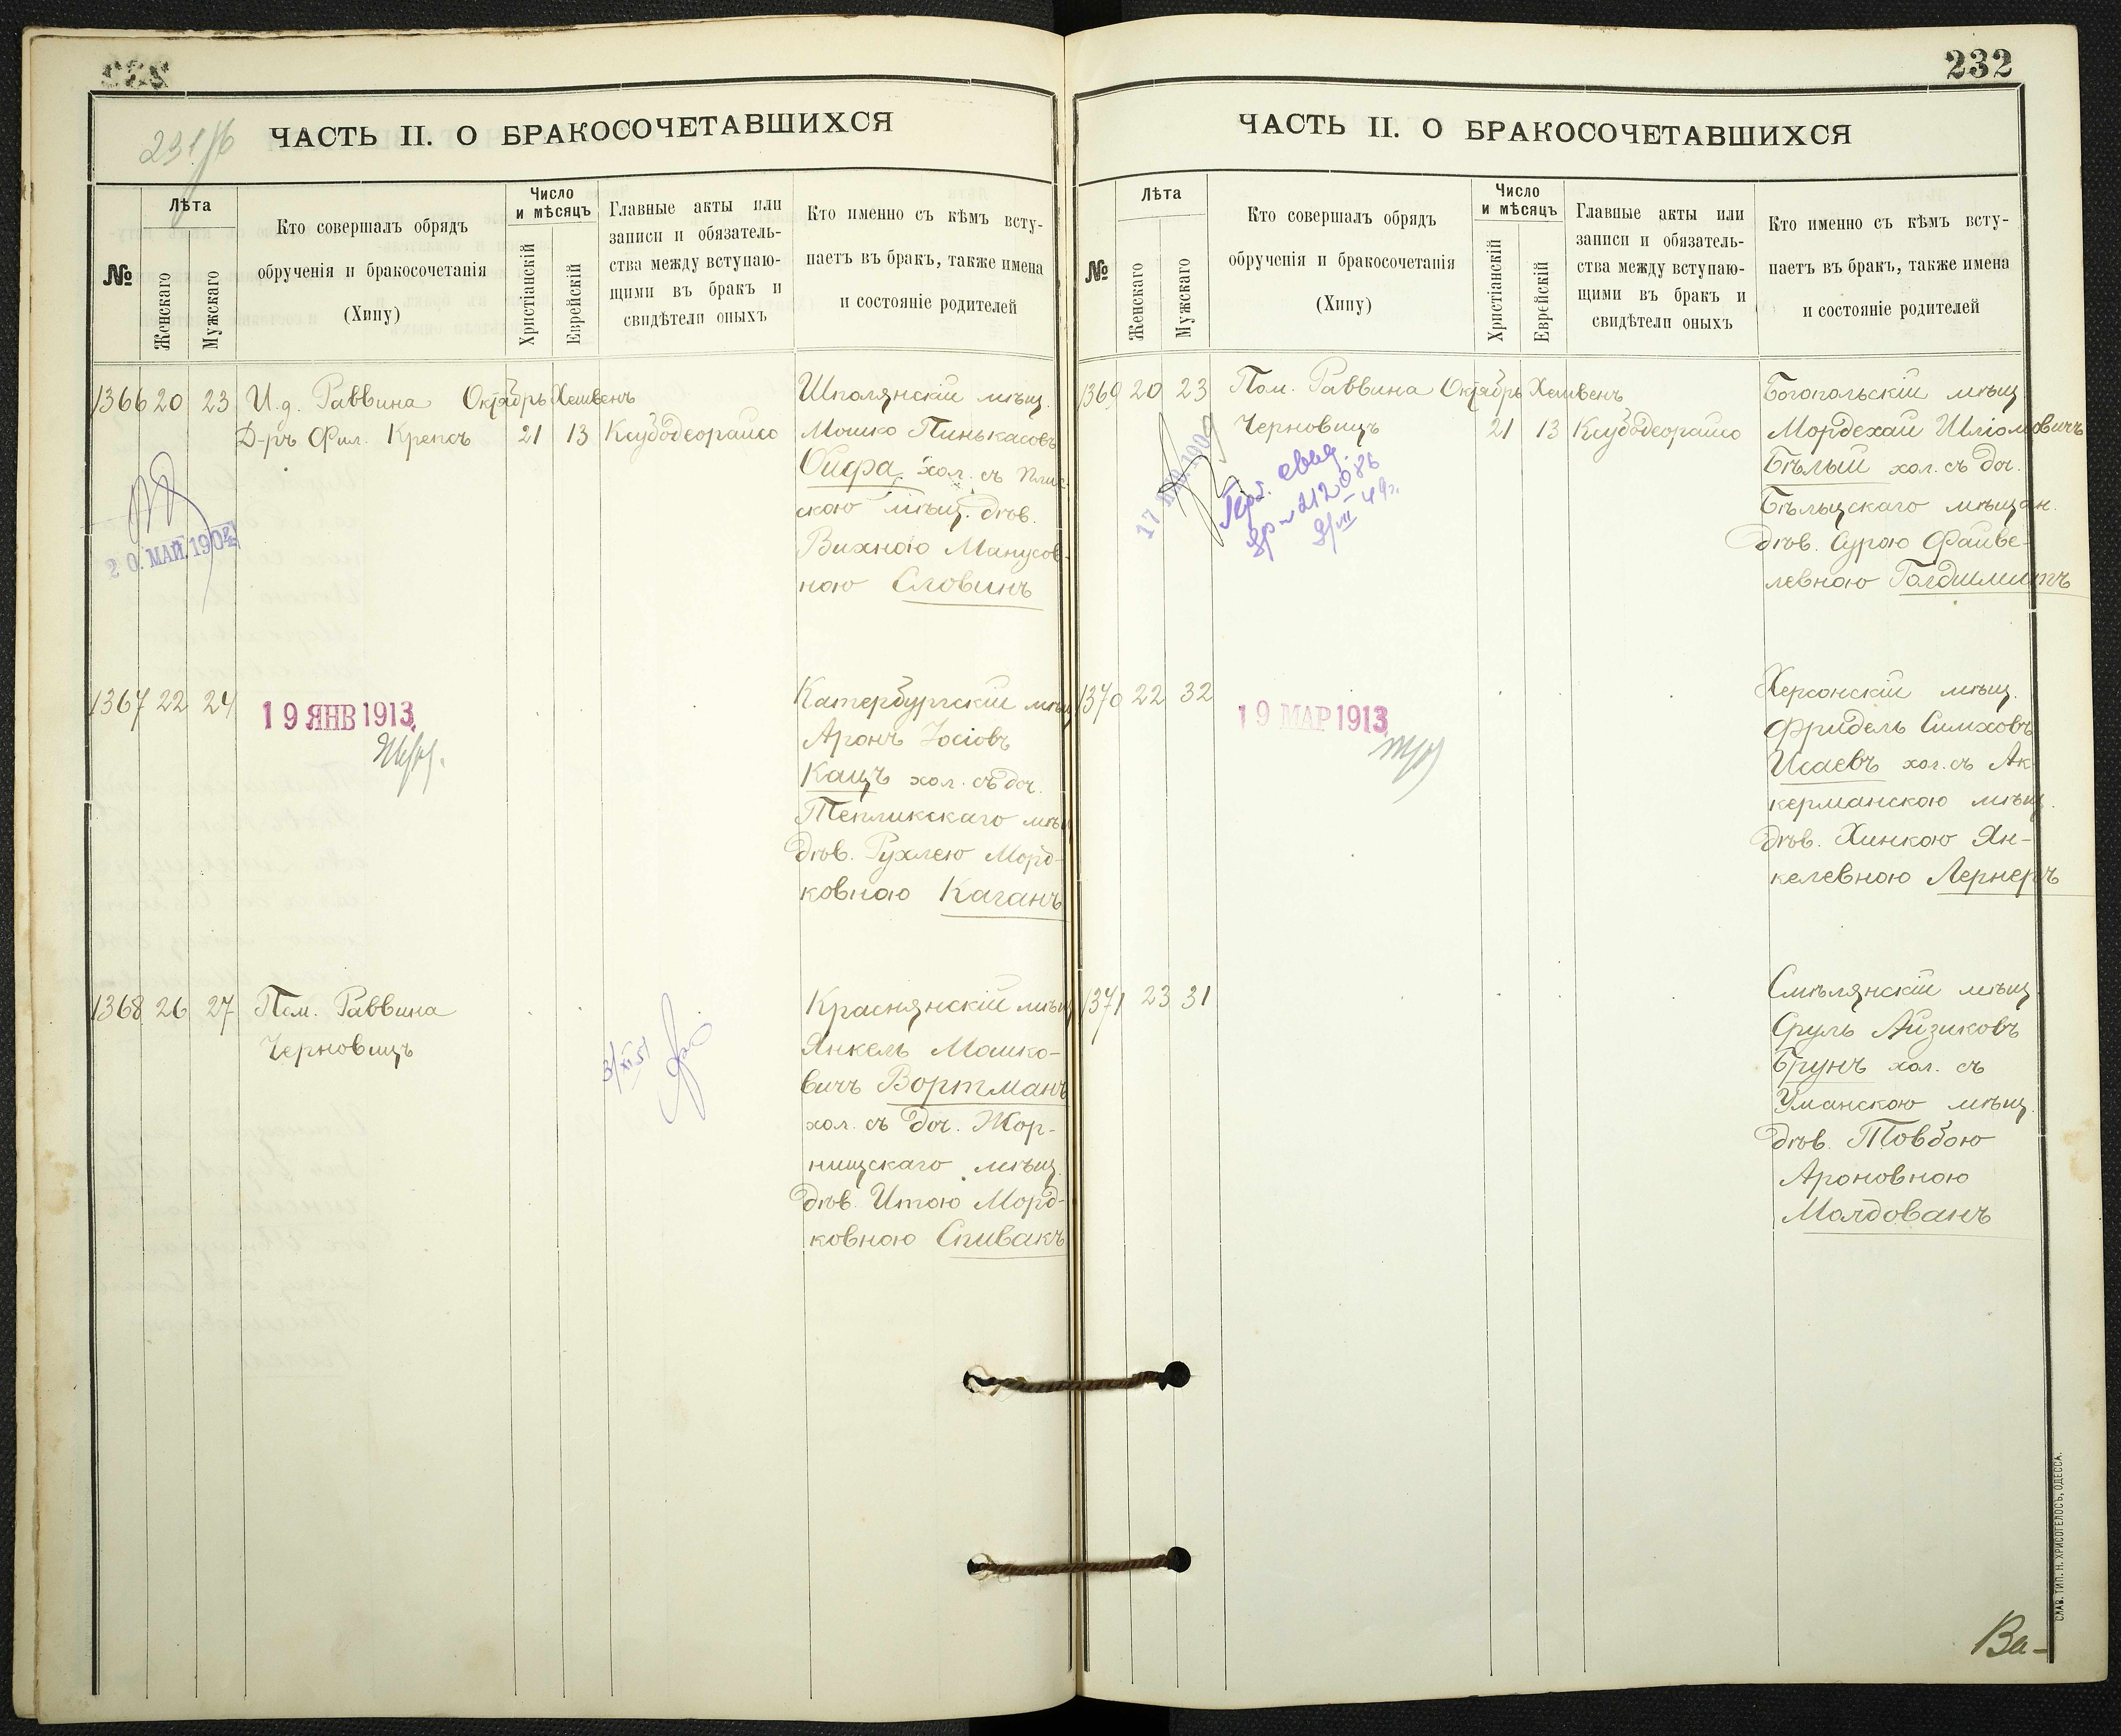 232
231/б
ЧАСТЬ II. О БРАКОСОЧЕТАВШИХСЯ
№
Лѣта
Женскаго
Мужскаго
Кто совершалъ обрядъ
обрученія и бракосочетанія
(Хипу)
Число
и мѣсяцъ
Христіанскій
Еврейскій
Главные акты или
записи и обязатель-
ства между вступаю-
щими въ бракъ и
свидѣтели оныхъ
Кто именно съ кѣмъ всту-
паетъ въ бракъ, также имена
и состояніе родителей
1366 20 23 И.д. Раввина Октябрь Хешвенъ
Д-ръ Фил. Крепсъ 21 13 Ксубодеорайсо
20 МАЙ 1904
Шполянскій мѣщ.
Мошко Пинькасовъ
Ойфа, хол. съ Плис-
скою мѣщ. дѣв.
Вихною Манусов-
ною Словинъ
1367 22 24
19 ЯНВ 1913
Катербургскій мѣщ
Аронъ Іосіовъ
Кацъ хол. съ доч.
Тепликскаго мѣщ
дѣв. Рухлею Морд-
ковною Каганъ
1368 26 27 Пом. Раввина
Черновицъ
3/XI 51
Краснянскій мѣщ
Янкель Мошко-
вичъ Вортманъ
хол. съ доч. Жор-
нищскаго мѣщ.
дѣв. Итою Морд-
ковною Спивакъ
232
ЧАСТЬ II. О БРАКОСОЧЕТАВШИХСЯ
№
Лѣта
Женскаго
Мужскаго
Кто совершалъ обрядъ
обрученія и бракосочетанія
(Хипу)
Число
и мѣсяцъ
Христіанскій
Еврейскій
Главные акты или
записи и обязатель-
ства между вступаю-
щими въ бракъ и
свидѣтели оныхъ
Кто именно съ кѣмъ всту-
паетъ въ бракъ, также имена
и состояніе родителей
1369 20 23 Пом. Раввина Октябрь Хешвенъ
Черновицъ 21 13 Ксубодеорайсо
свид.
212086
Богопольскій мѣщ
Мордехай Шліомовичъ
Бѣлый хол. съ доч.
Бѣльцскаго мѣщан.
дѣв. Сурою Файве-
левною Голдшмитъ
1370 22 32
19 МАР 1913
Херсонскій мѣщ.
Фридель Симховъ
Исаевъ хол. съ Ак-
керманскою мѣщ.
дѣв. Хинкою Ян-
келевною Лернеръ
1371 23 31
Смѣлянскій мѣщ.
Сруль Айзиковъ
Брунъ хол. съ
Уманскою мѣщ.
дѣв. Товбою
Ароновною
Молдованъ
Ва-
СЛАВ. ТИП. Н. ХРИСОГЕЛОСЪ, ОДЕССА.